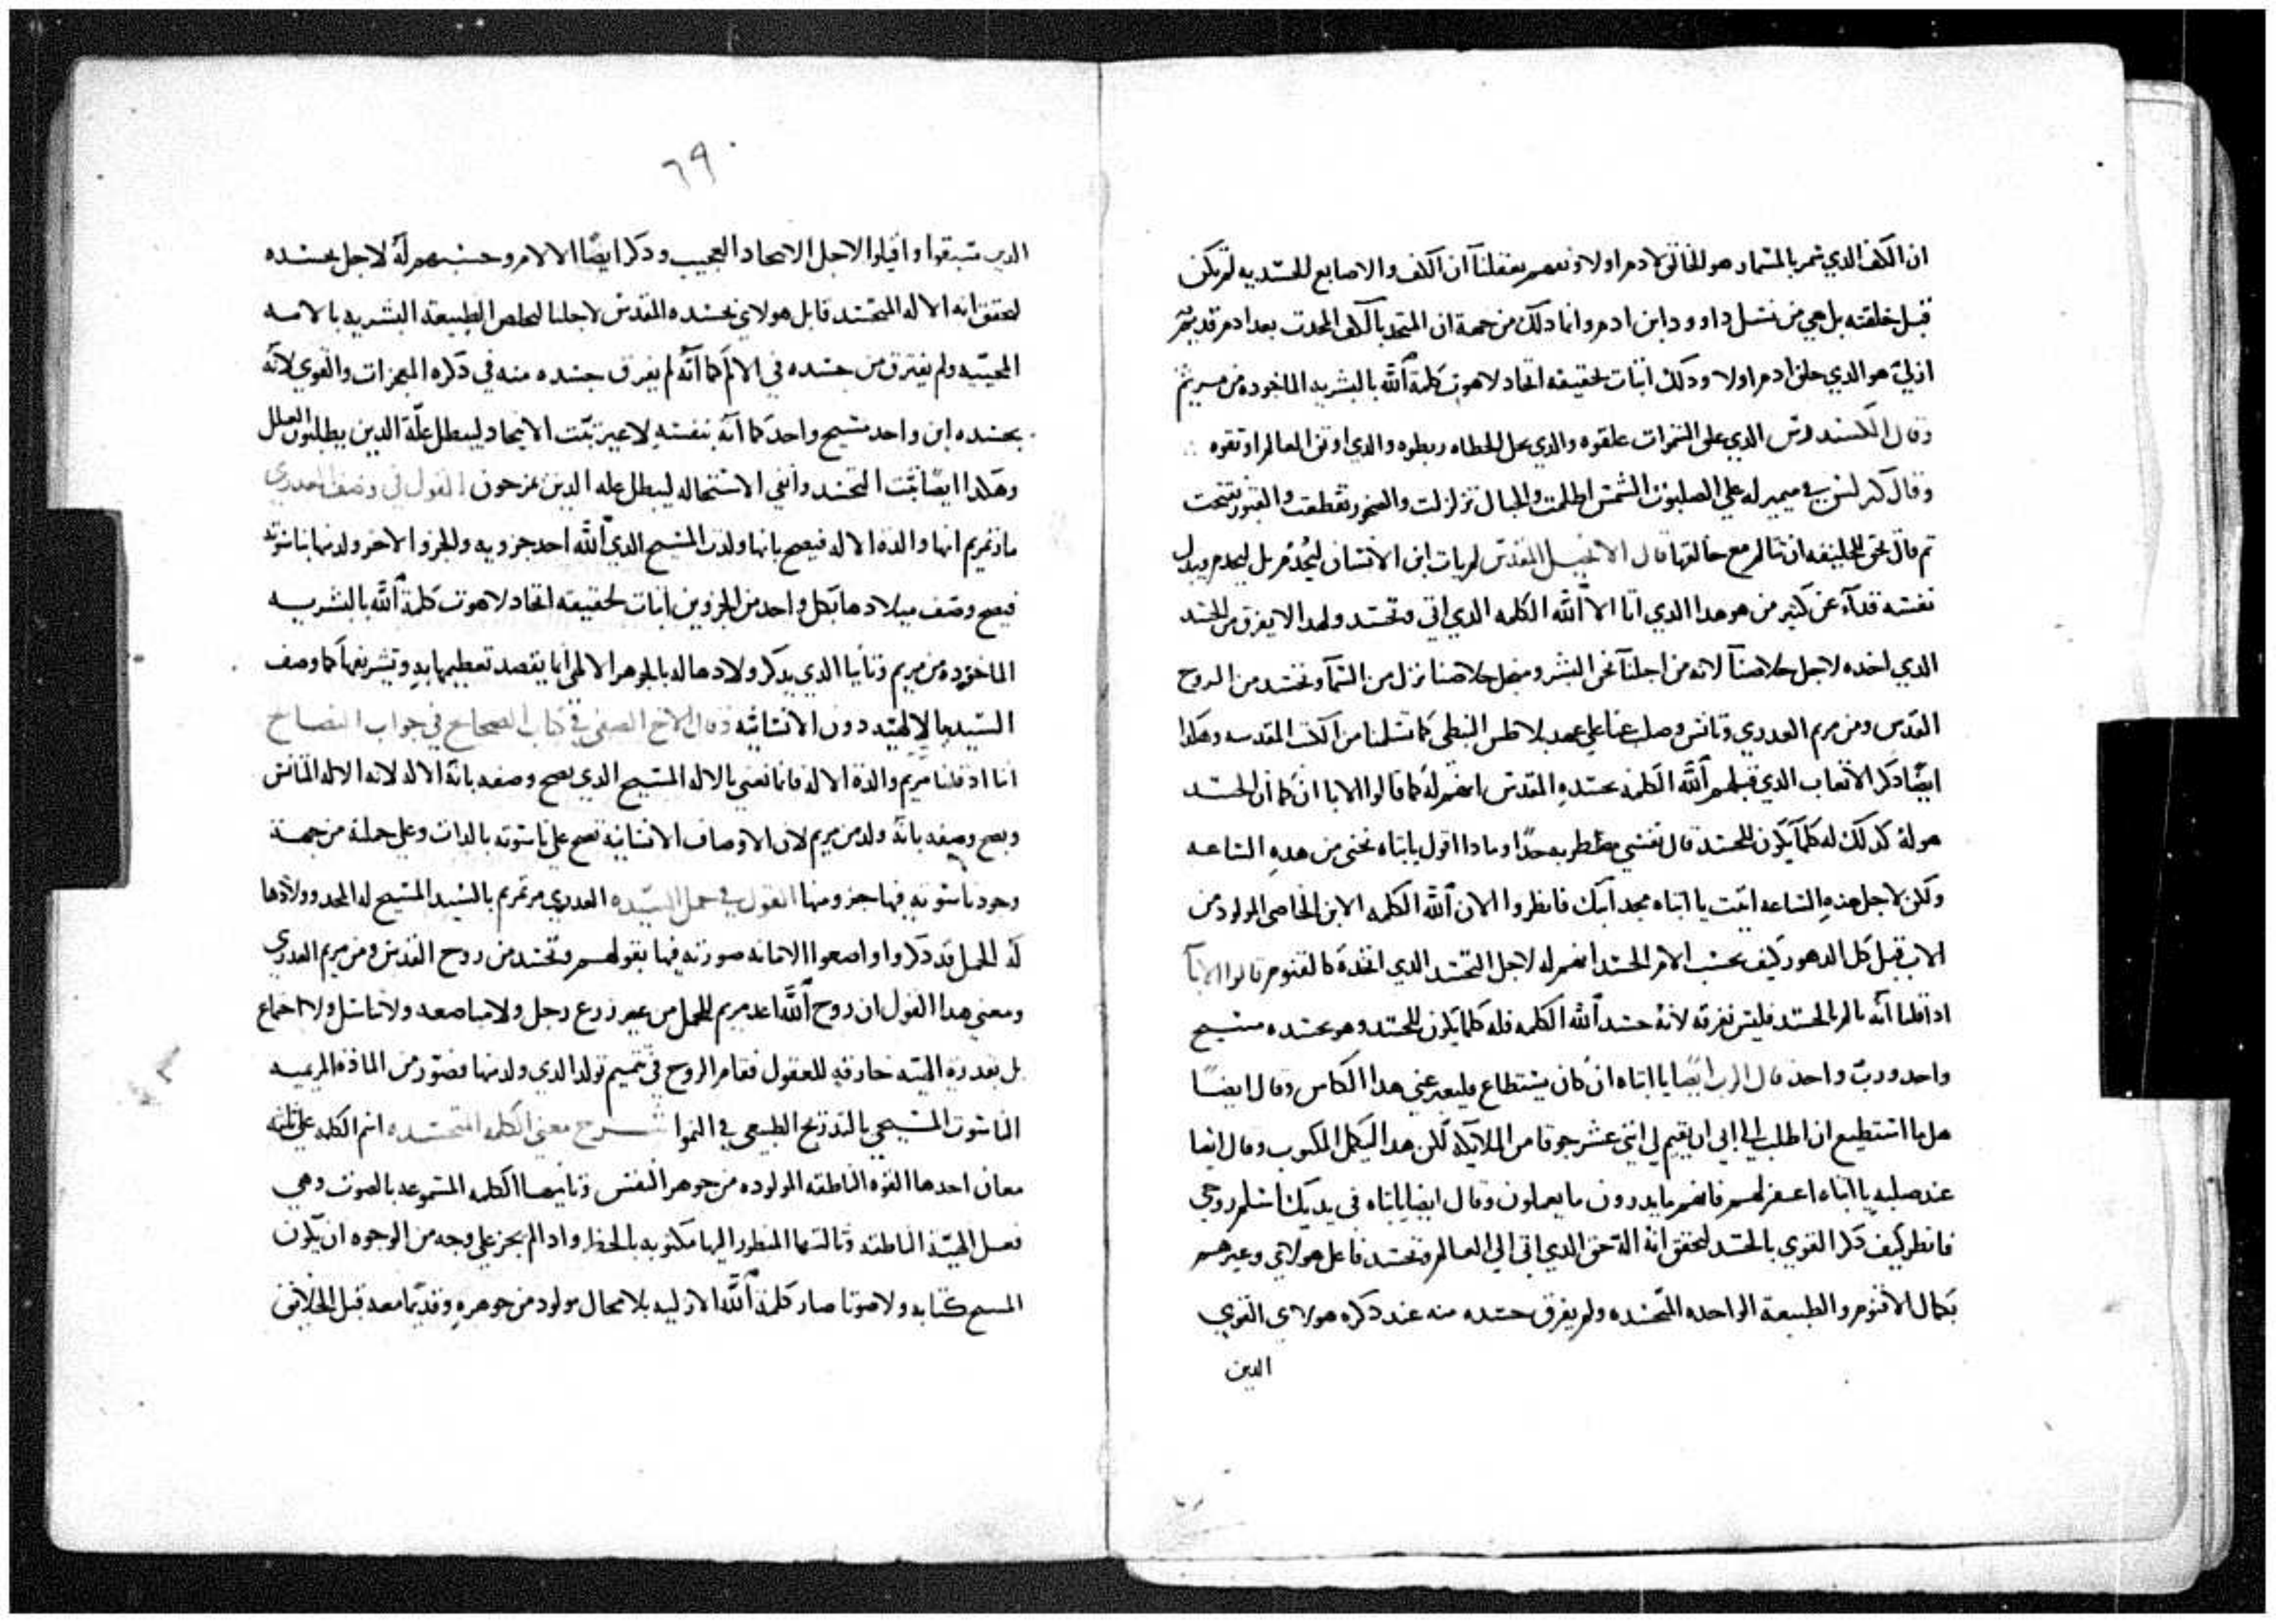 ان الكف الذي سمر بالمسمار هو الخالق لادم اولا ونعم بعقلنا ان الكف والاصابع للجسديه لم يكن
قبل خلقته بل هي من نسل داوود ابن ادم وانما ذلك من جهة ان المتحد بالكف المحدث بعد ادم قديم
ازلي هو الذي خلق ادم اولا وذلك اثبات لحقيقه اتحاد لاهوت كلمة الله بالبشريه الماخوده من مريم
وقال الكسندرس الذي على السموات علقوه والذي يحل الخطاه ربطوه والذي اوثق العالم اوثقوه
وقال كيرلس في ميمر له على الصلبوت الشمس اظلمت والجبال تزلزلت والصخور تقطعت والقبور تفتحت
تم قال يحق للخليقه ان تتالم مع خالقها قال الانجيل المقدس لم يات ابن الانسان ليُخدم بل ليخدم ويبدل
نفسه فدآء عن كثير من هو هدا الدي اتا الا الله الكلمه الدي اتي وتجسد ولهدا لا يفرق من الجسد
الدي اخده لاجل خلاصنا لانه من اجلنا نحن البشر ومن اجل خلاصنا نزل من السمآ وتجسد من الروح
القدس ومن مريم العدري وتانس وصلب عنا على عهد بلاطس النبطي كما تسلمنا من الكتب المقدسه وهكدا
ايضا دكر الاتعاب الدي قبلهم الله الكلمه بجسده المقدس انهم له كما قالوا الابا ان كما ان الجسد
هو له كدلك له كلما يكون للجسد قال نفسي مضطربه جدا ومادا اقول يا ابتاه نجني من هده الساعه
ولكن لاجل هذه الساعه اتيت يا ابتاه مجد ابنك فانظروا الان الله الكلمه الابن الخاص المولود من
الاب قبل كل الدهور كيف يحسب الام الجسد انهم له لاجل التجسد الدي اتخده كالقنوم قالوا الابآ
ادا قلنا انه تالم بالجسد فليس نفرقه لانه جسد الله الكلمه فله كلما يكون للجسد وهو بجسده مسيح
واحد ورب واحد قال الرب ايضا يا ابتاه ان كان يستطاع فليعبر عني هدا الكاس وقال ايضا
هل ما استطيع ان اطلب الي ابي ان يقيم لي اثني عشر جوقا من الملايكه لكن هدا ليكمل المكتوب وقال ايضا
عند صلبه يا ابتاه اغفر لهم فانهم ما يدرون ما يعملون وقال ايضا يا ابتاه في يديك اسلم روحي
فانظر كيف دكر القوي بالجسد لتحقق انه اله حق الدي اتي الي العالم وتجسد فاعل هولاي وغيرهم
بكمال الاقنوم والطبيعة الواحده المتجسده ولم يفرق جسده منه عند دكره هولاي القوي
الدين
٦٩
الدين سبقوا وقيلوا لاجل الاتحاد العجيب ودكر ايضا الالام وحسبهم له لاجل جسده
لتحقق انه الاله المتجسد قابل هولاي بجسده المقدس لاجلنا ليخلص الطبيعة البشريه بالامه
المحييه ولم يفترق من جسده في الالم كما انه لم يفرق جسده منه في دكره المعجزات والقوي لانه
بجسده ابن واحد مسيح واحد كما انه بنفسه لا غير ثبت الاتحاد ليبطل علة الدين يطلبون العلل
وهكدا ايضا ثبت التجسد وانفي الاستحاله ليبطل عله الدين يمزجون القول في وصف العدري
مارتمريم انها والدة الاله فيصح بانها ولدت المسيح الدي الله احد جزويه وللجزو الاخر ولد منها بناسوته
فيصح وصف ميلادها بكل واحد من الجزوين اثبات لحقيقه اتحاد لاهوت كلمة الله بالبشريه
الماخوده من مريم وثانيا الدي يدكر ولادها له بالجوهر الالهي انما يقصد تعظيمها به وتشريفها كما وصف
السيد بالالهيه دون الانسانيه وقال الاخ الصفي في كتاب الصحايح في جواب النصايح
اننا ادا قلنا مريم والدة الاله فانما نعني بالاله المسيح الدي يصح وصفه بانه الاله لانه الاله المتانس
ويصح وصفه بانه ولد من مريم لان الاوصاف الانسانيه تصح على ناسوته بالدات وعلى جملته من جهة
وجود ناسوته فيها جزو منها القول في حمل السيده العدري مرتمريم بالسيد المسيح له المجد وولادها
له الحمل قد دكروا واضعوا الامانه صورته فيها بقولهم وتجسد من روح القدس ومن مريم العدري
ومعني هدا القول ان روح الله اعد مريم للحمل من غير زرع رجل ولا مباضعه ولا تناسل ولا اجتماع
بل بقدرة الهيه خارقه للعقول فقام الروح في تتميم تولد الدي ولد منها فصور من الماده المريميه
الناسوت المسيحي بالتدريج الطبيعي في النموا شرح معني الكلمه المتجسده اسم الكلمه على ثلثه
معان احدها القوه الناطقه المولوده من جوهر النفس وثانيها الكلمه المسموعه بالصوت وهي
فعل الهيئة الناطقه وثالثها المنظور اليها مكتوبه بالخط وادا لم يجز على وجه من الوجوه ان يكون
المسيح كتابه ولا صوتا صار كلمة الله الازليه بلا محال مولود من جوهره وقديما معه قبل الخلايق